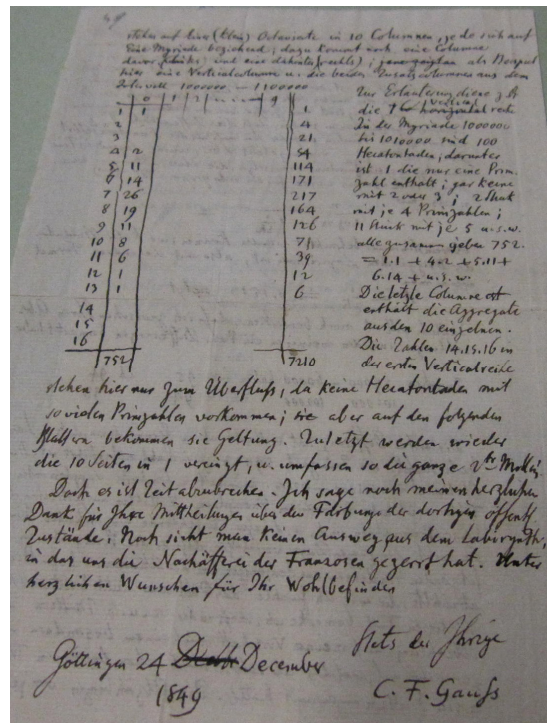 stehen auf einer (klein) Octavseite in 10 Columnen, jede sich auf
eine Myriade beziehend; dazu kommt noch eine Columne
davor (links) und eine dahinter (rechts); als Beispiel
hier eine Verticalcolumne u. die beiden Zusatzcolumnen aus dem
Intervall 1000000 – 1100000
0 1 2 ..... 9
1 1 1
2 4
3 21
4 2 54
5 11 114
6 14 171
7 26 217
8 19 164
9 11 126
10 8 71
11 6 39
12 1 12
13 1 6
14
15
16
752 7210
Zur Erläuterung diene z. B.
die 1 vertical reihe
In der Myriade 1000000
bis 1010000 sind 100
Hecatontaden; darunter
ist 1 die nur eine Prim-
zahl enthält; gar keine
mit 2 oder 3; 2 Stück
mit je 4 Primzahlen;
11 Stück mit je 5 u.s.w.
alle zusammen geben 752.
= 1.1 + 4.2 + 5.11 +
6.14 + u.s.w.
Die letzte Columne
enthält die Aggregate
aus den 10 einzelnen.
Die Zahlen 14.15.16 in
der ersten Verticalreihe
stehen hier nur zum Überfluß, da keine Hecatontaden mit
so vielen Primzahlen vorkommen; sie aber auf den folgenden
Blättern bekommen sie Geltung. Zuletzt werden wieder
die 10 Seiten in 1 vereinigt, u. umfassen so die ganze
Doch es ist Zeit abzubrechen. Ich sage noch meinen herzlichen
Dank für Ihre Mittheilungen über den Färbung der dortigen öffentl
Zustände. Noch sieht man keinen Ausweg aus dem Labyrinth,
in das uns die Nachäfferei der Franzosen gezerrt hat. Unter
herzlichen Wünschen für Ihr Wohlbefinden
Stets der Ihrige
Göttingen 24 December
1849 C. F. Gauß